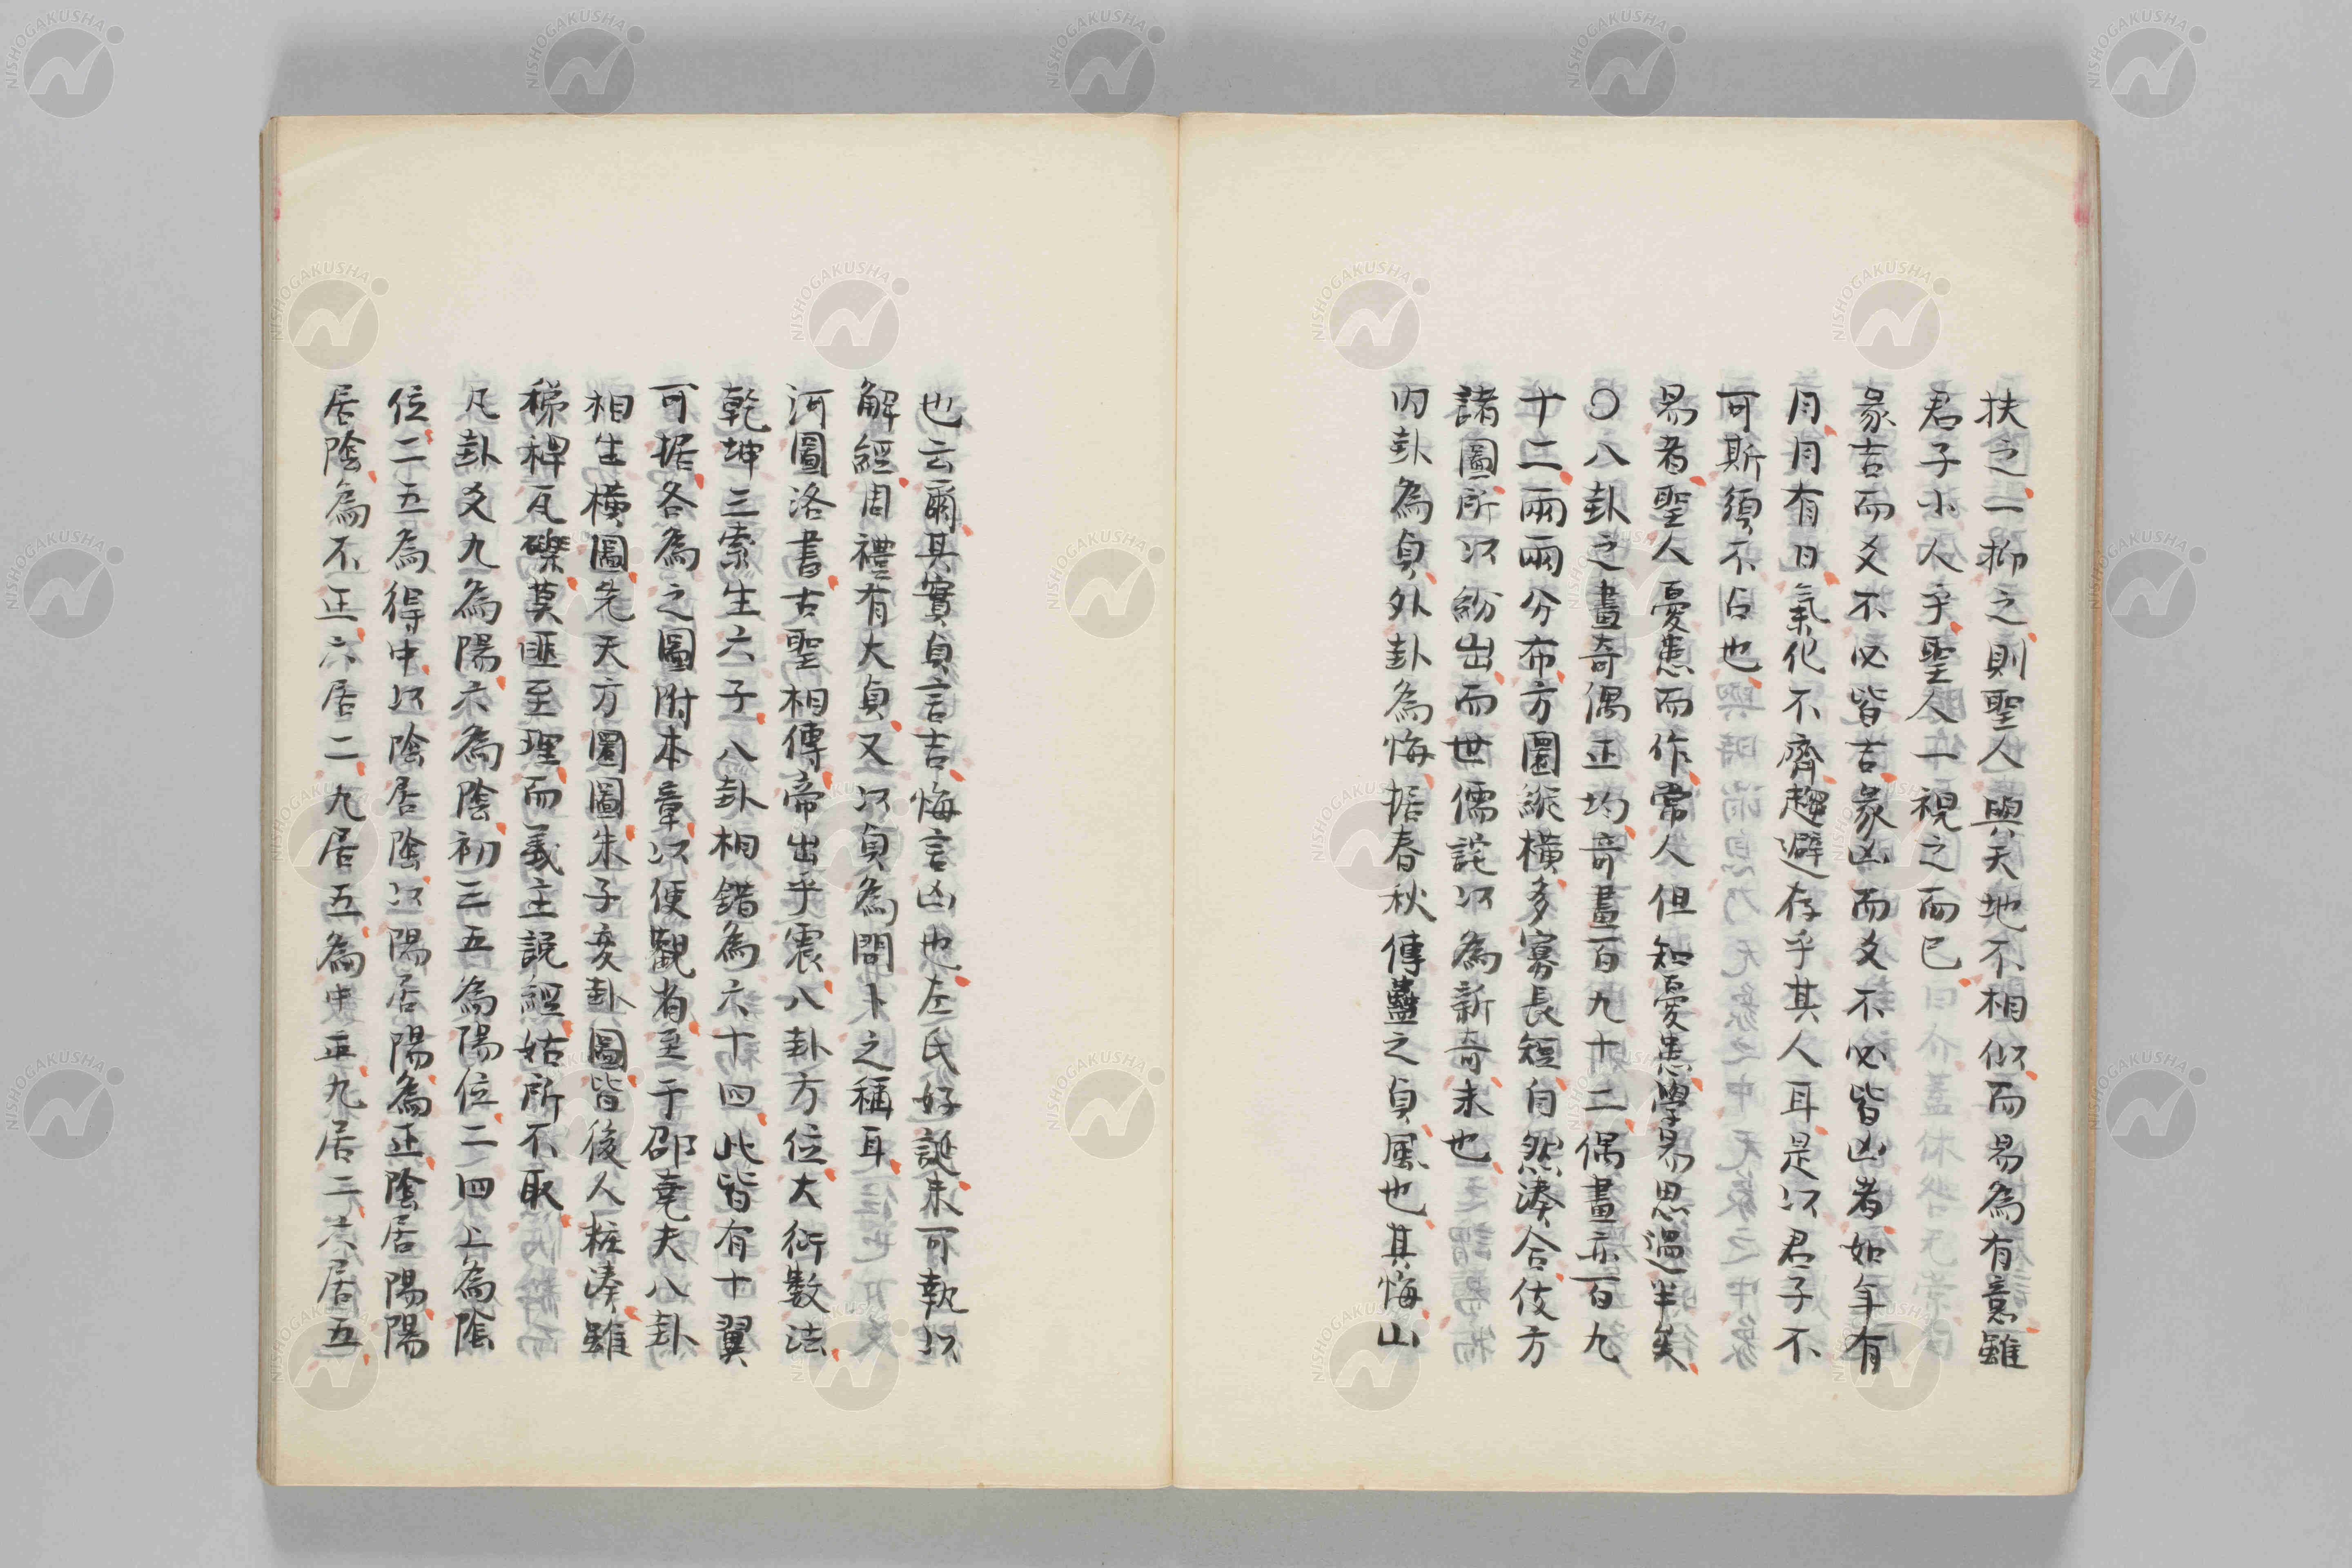 扶之一抑之則聖人與天地不相似而易為有意雖
君子小人乎聖人一視之而已
彖吉而爻不必皆吉彖凶而爻不必皆凶者如年有
月月有日氣化不齊趨避存乎其人耳是以君子不
可斯須不占也
易者聖人憂患而作常人但知憂患學易思過半矣
〇八卦之畫奇偶正均奇畫百九十二偶畫亦百九
十二兩兩分布方圓縱橫多寡長短自然湊合伎方
諸圖所以紛出而世儒詫以為新奇未也
內卦為貞外卦為悔据春秋傳蠱之貞風也其悔山
也云爾其實貞言吉悔言凶也左氏好誕未可執以
解經周禮有大貞又以貞為問卜之稱耳
河圖洛書古聖相傳帝出乎震八卦方位大衍數法
乾坤三索生六子八卦相錯為六十四此皆有十翼
可据各為之圖附本章以便觀者至于邵堯夫八卦
相生橫圖先天方圓圖朱子変卦圖皆後人粧湊雖
稊稗瓦礫莫匪至理而義主説經姑所不取
凡卦爻九為陽六為陰初三五為陽位二四上為陰
位二五為得中以陰居陰以陽居陽為正陰居陽陽
居陰為不正六居二九居五為中正九居二六居五
NISHOGAKUSHA